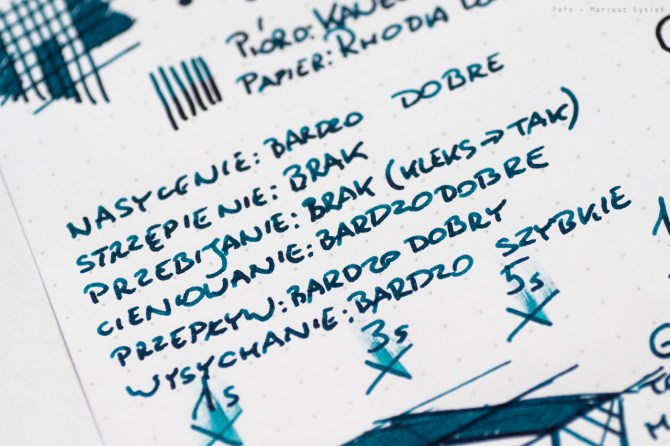 Foto - Mariusz Łysień
PIÓRO:
PAPIER: RHODIA
NASYCENIE: BARDZO DOBRE
STRZĘPIENIE: BRAK
PRZEBIJANIE: BRAK (KLEKS → TAK)
CIENIOWANIE: BARDZO DOBRE
PRZEPŁYW: BARDZO DOBRY
WYSYCHANIE: BARDZO SZYBKIE
1s 3s 5s